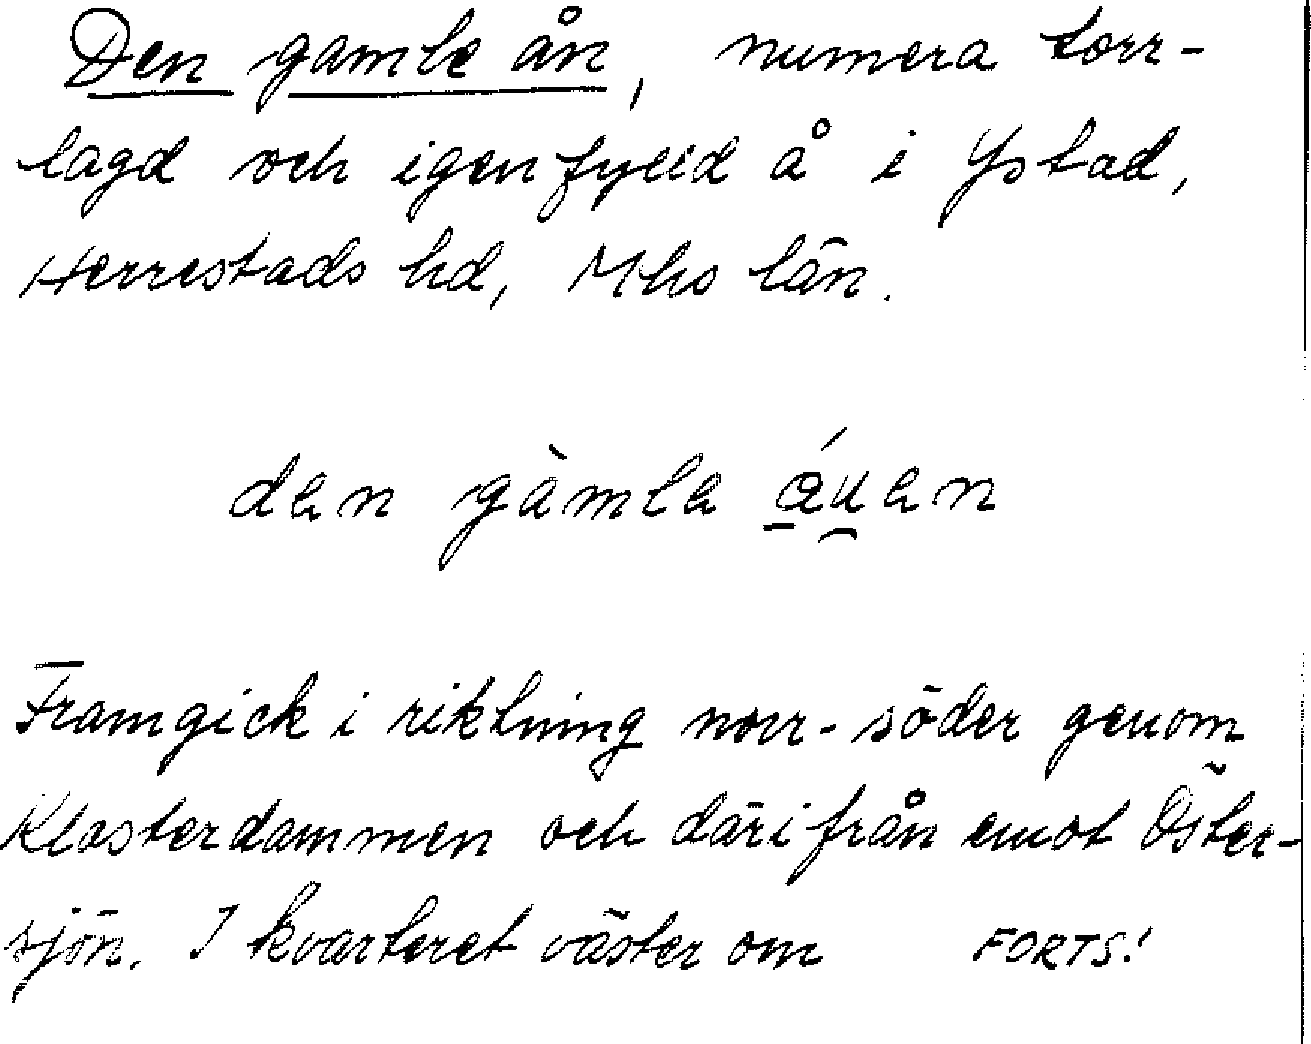 Den gamle ån, numera torr-
lagd och igenfylld å i Ystad,
Herrestads hd, Mhs län.
den gàmla áu̯an
Framgick i riktning norr-söder genom
Klosterdammen och därifrån emot Öster-
sjön. I kvarteret väster om FORTS!